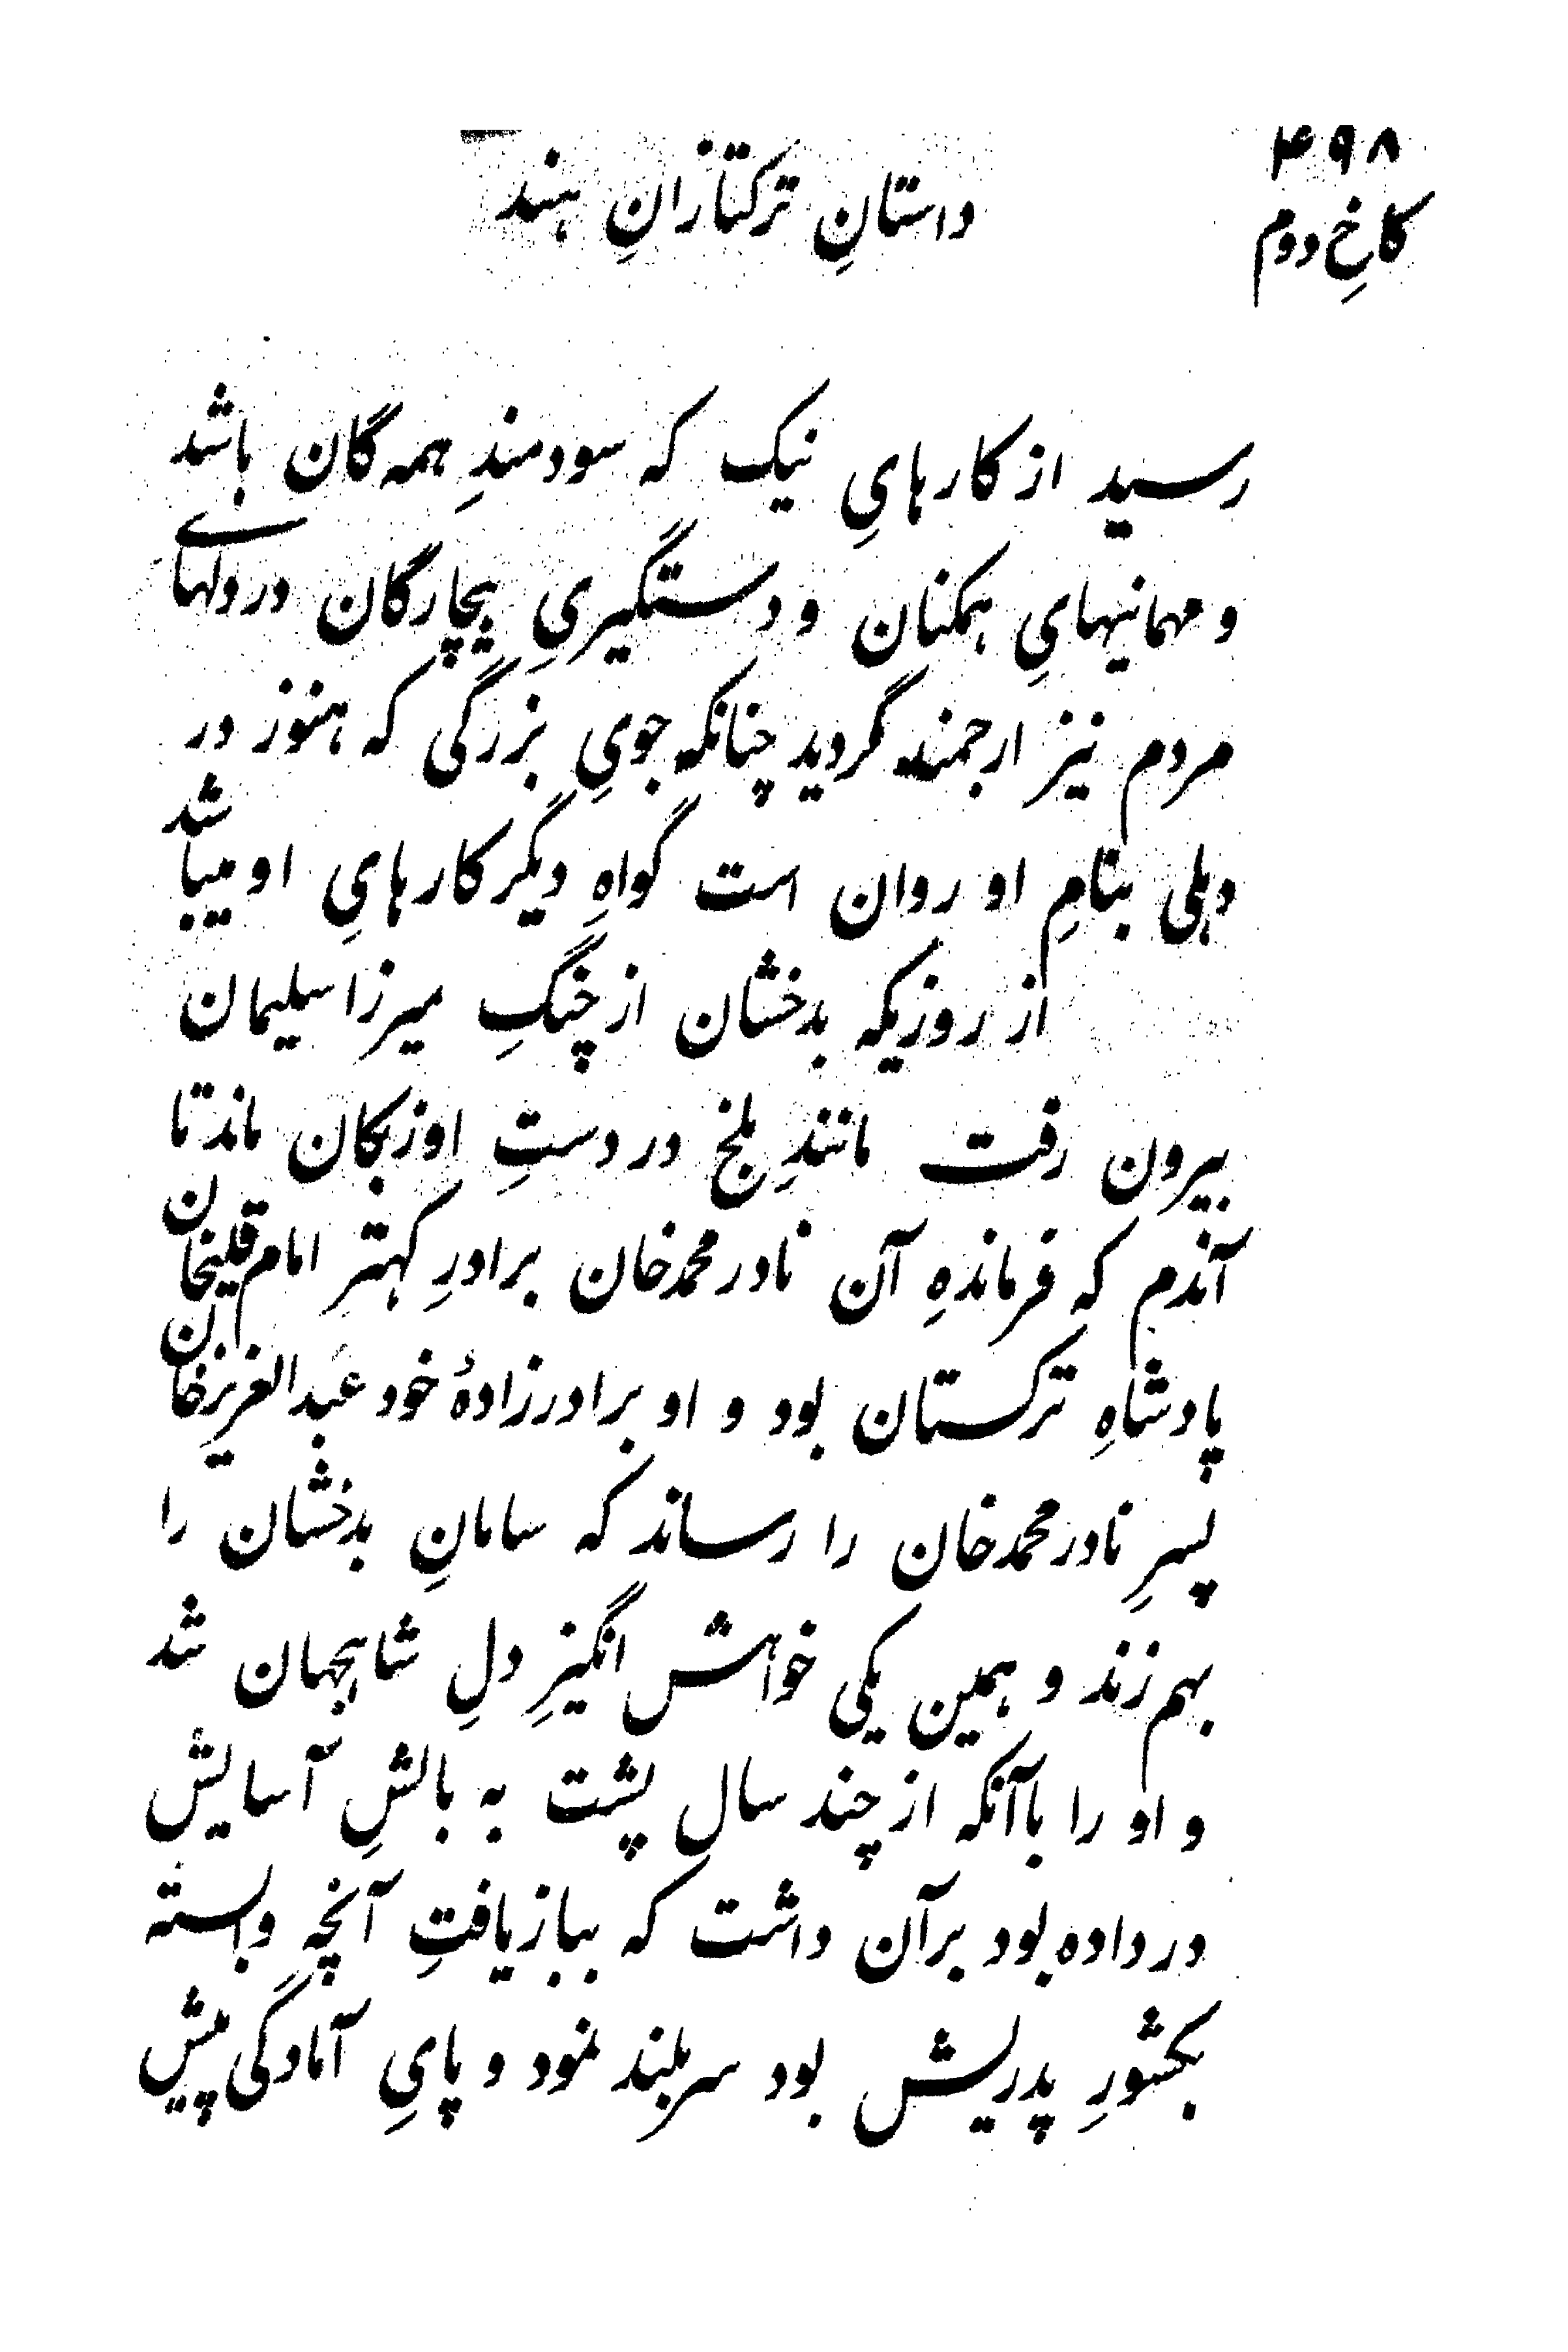 ۴۹۸
کاخِ دوم
داستانِ ترکتازانِ هند
رسید از کارهایِ نیک که سودمندِ همه‌گان باشد
و مهمانیهایِ همکنان و دستگیریِ بیچارگان در دلهای
مردم نیز ارجمند گردید چنانکه جویِ بزرگی که هنوز در
دهلی بنامِ او روان است گواهِ دیگر کارهایِ او میباشد
از روزیکه بدخشان از چنگِ میرزا سلیمان
بیرون رفت مانندِ بلخ در دستِ اوزبکان ماند تا
آندم که فرماندهِ آن نادر محمدخان برادرِ کهتر امام قلیخان
پادشاهِ ترکستان بود و او برادرزادهٔ خود عبدالعزیزخان
پسرِ نادر محمدخان را رساند که سامانِ بدخشان را
بهم زند و همین یکی خواهش انگیزِ دلِ شاهجهان شد
و او را باآنکه از چند سال پشت به بالشِ آسایش
در داده بود برآن داشت که ببازیافتِ آنچه وابسته
بکشورِ پدریش بود سر بلند نمود و پایِ آمادگی پیش